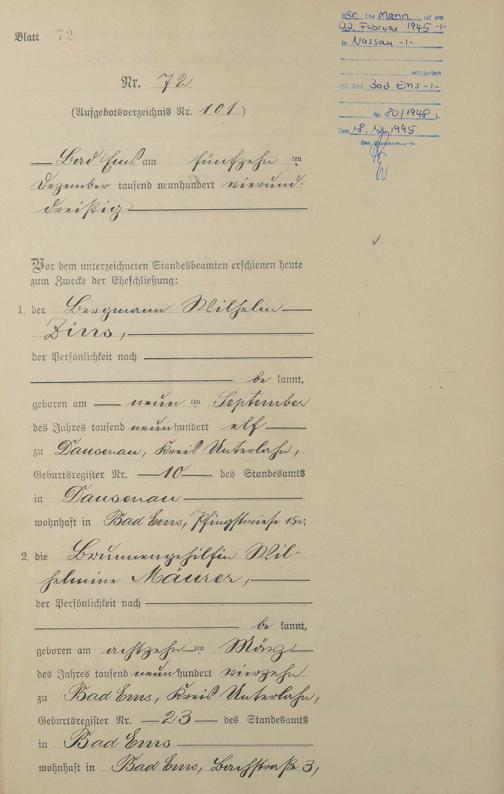 Blatt 72
Der Ehe Mann ist am
02. Februar 1945 -/-
in Nassau -/-
verstorben
St. Amt Bad Ems -/-
Nr. 80/1948
Den 18. 1995
Nr. 72
(Aufgebotsverzeichnis Nr. 101)
Bad Ems am fünfzehn ten
Dezember tausend neunhundert vierund-
dreißig
Vor dem unterzeichneten Standesbeamten erschienen heute
zum Zwecke der Eheschließung:
1. der Bergmann Wilhelm
Zins,
der Persönlichkeit nach
be kannt,
geboren am neun ten September
des Jahres tausend neunhundert elf
zu Dausenau, Kreis Unterlahn,
Geburtsregister Nr. 10 des Standesamts
in Dausenau
wohnhaft in Bad Ems, Pfingstwiese 15a.
2. die Brunnengehilfin Wil-
helmine Mäurer,
der Persönlichkeit nach
be kannt,
geboren am achtzehn ten März
des Jahres tausend neunhundert vierzehn
zu Bad Ems, Kreis Unterlahn,
Geburtsregister Nr. 23 des Standesamts
in Bad Ems
wohnhaft in Bad Ems, Bachstraße 3,